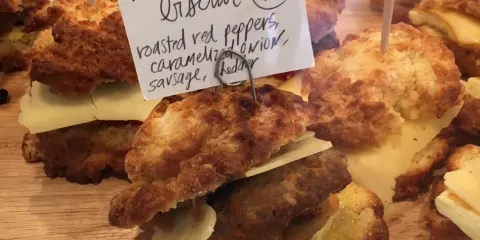 biscuit
roasted red peppers,
caramelized onion,
sausage, cheddar